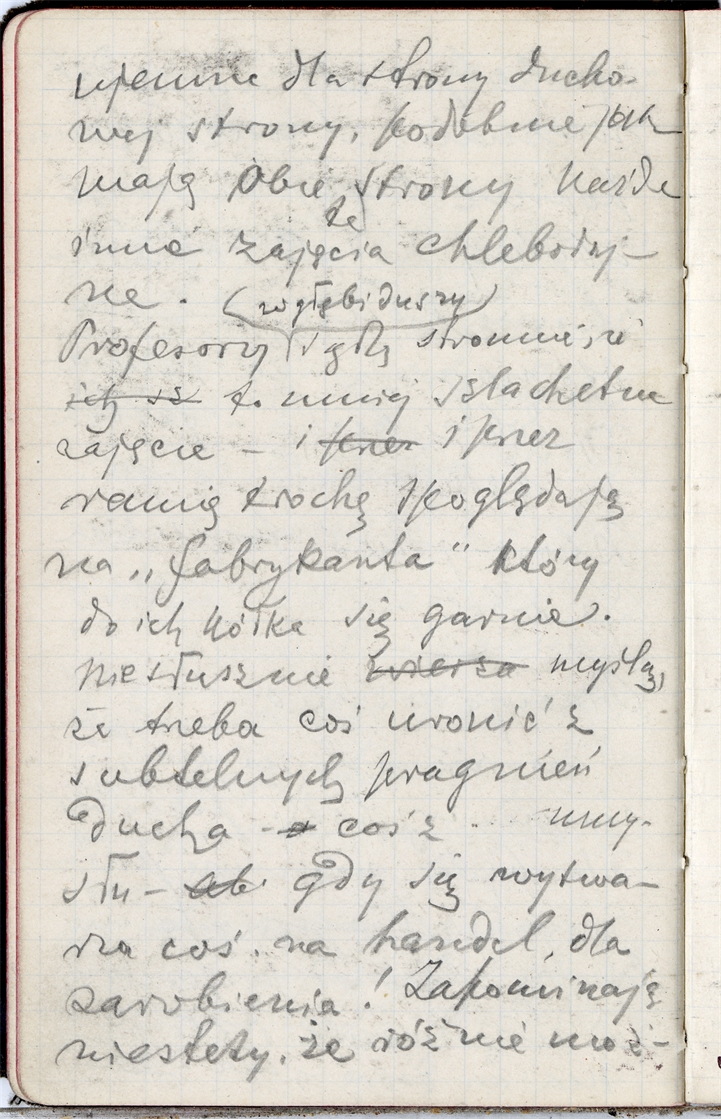 ujemne dla strony ducho-
wej strony, podobnie jak
mają obie strony każde
że
inne zajęcia chlebodaj-
ne.
(w głębi duszy)
Profesorzy sądzą stronnie, iż
to mniej szlachetne
zajęcie – i przez i przez
ramię trochę spoglądają
na „fabrykanta" który
do ich kółka się garnie.
Niesłusznie myślą,
że trzeba coś uronić z
subtelnych pragnień
ducha – coś z .. umy-
słu – gdy się wytwa-
rza coś na handel, dla
zarobienia! Zapominają
niestety, że różnie moż-